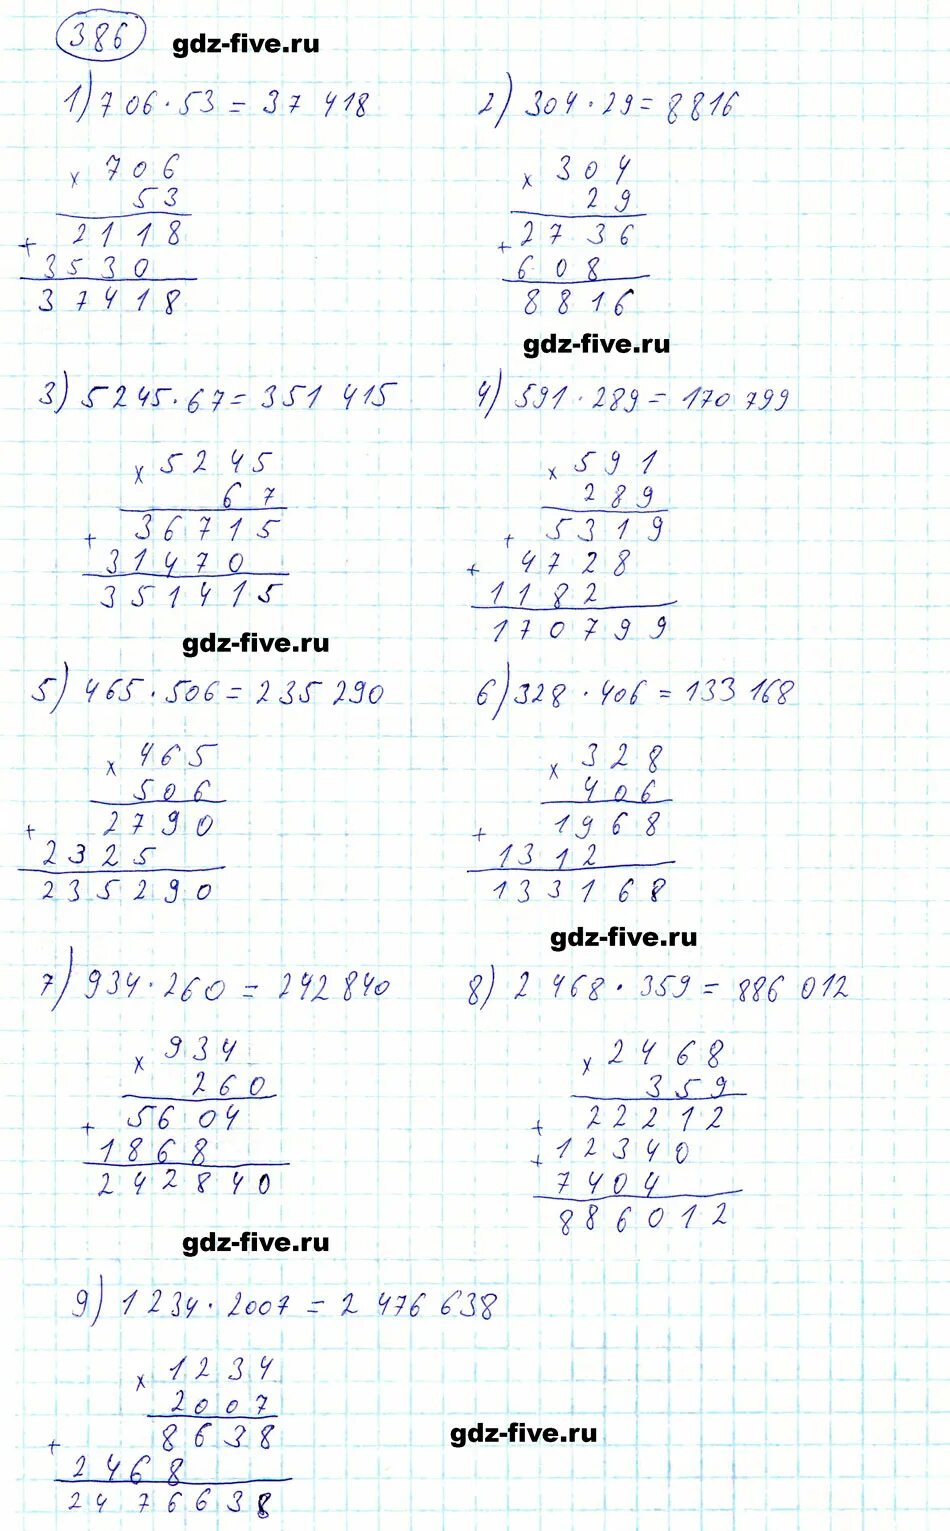 386 gdz-five.ru
1) 706 · 53 = 37 418
x 706
53
+ 2118
3530
37418
2) 304 · 29 = 8816
x 304
29
+ 2736
608
8816
gdz-five.ru
3) 5245 · 67 = 351 415
x 5245
67
+ 36715
31470
351415
4) 591 · 289 = 170 799
x 591
289
+ 5319
+ 4728
1182
170799
gdz-five.ru
5) 465 · 506 = 235 290
x 465
506
+ 2790
2325
235290
6) 328 · 406 = 133 168
x 328
406
+ 1968
1312
133168
gdz-five.ru
7) 934 · 260 = 242 840
x 934
260
+ 5604
1868
242840
8) 2 468 · 359 = 886 012
x 2468
359
+ 22212
+ 12340
7404
886012
gdz-five.ru
9) 1 234 · 2007 = 2 476 638
x 1234
2007
+ 8638
2468
2476638
gdz-five.ru